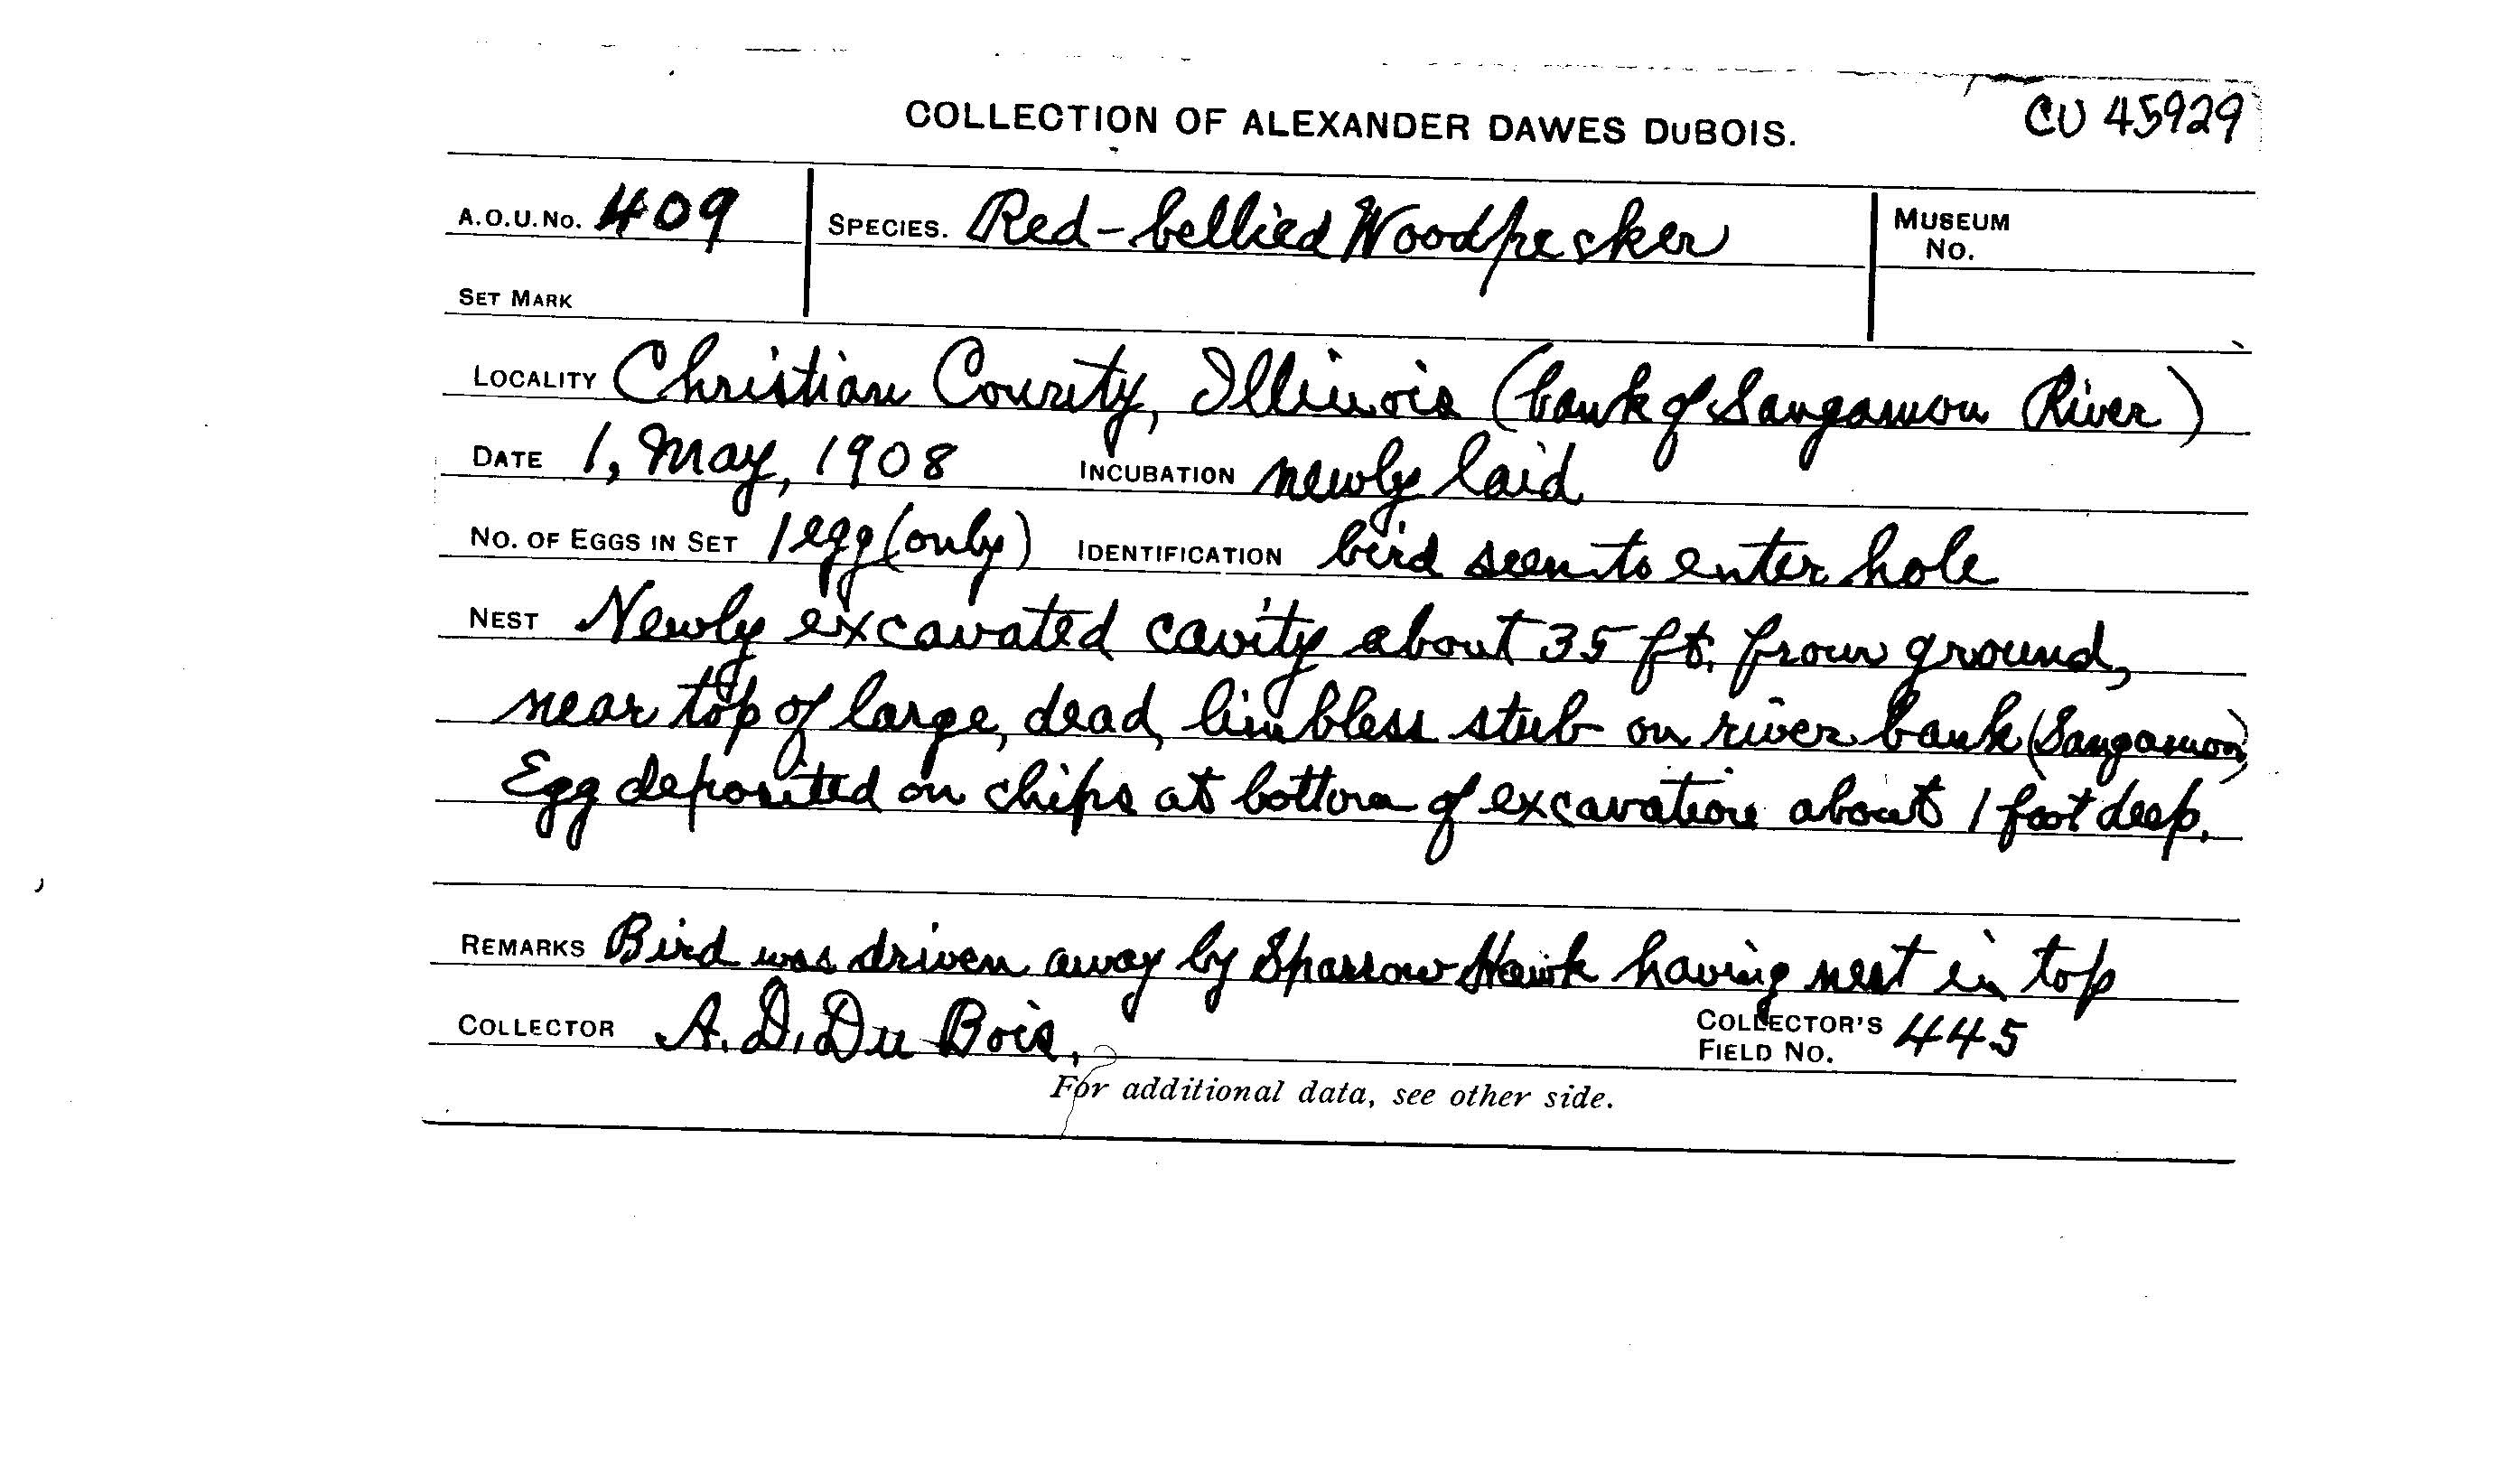 COLLECTION OF ALEXANDER DAWES DUBOIS. CU 45929
A.O.U. No. 409 SPECIES. Red-bellied Woodpecker MUSEUM No.
SET MARK
LOCALITY Christian County, Illinois (bank of Sangamon River)
DATE 1, May, 1908 INCUBATION newly laid
No. OF EGGS IN SET 1 egg (only) IDENTIFICATION bird seen to enter hole
NEST Newly excavated cavity about 35 ft. from ground,
near top of large, dead, limbless stub on river bank (Sangamon)
Egg deposited on chips at bottom of excavation about 1 foot deep.
REMARKS Bird was driven away by Sparrow Hawk having nest in top
COLLECTOR A. D. Du Bois, COLLECTOR'S FIELD No. 445
For additional data, see other side.